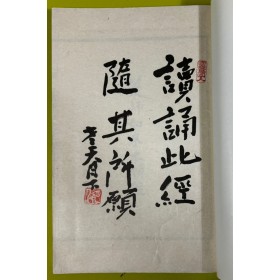 讀誦此經
隨其所願